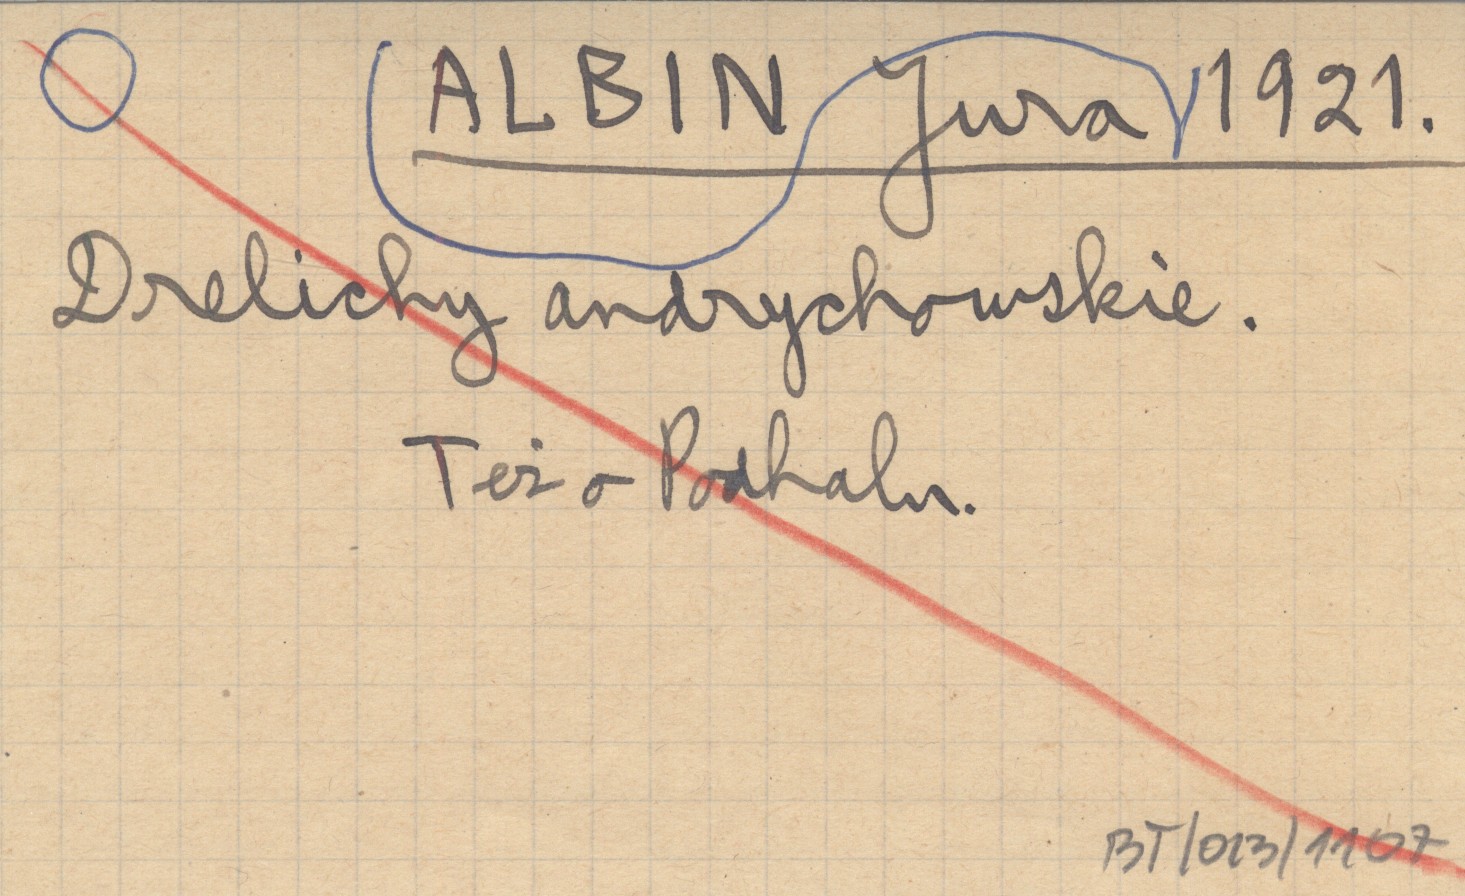 ALBIN Jura 1921.
Drelichy andrychowskie.
Też o Podhalu.
BT/013/1107